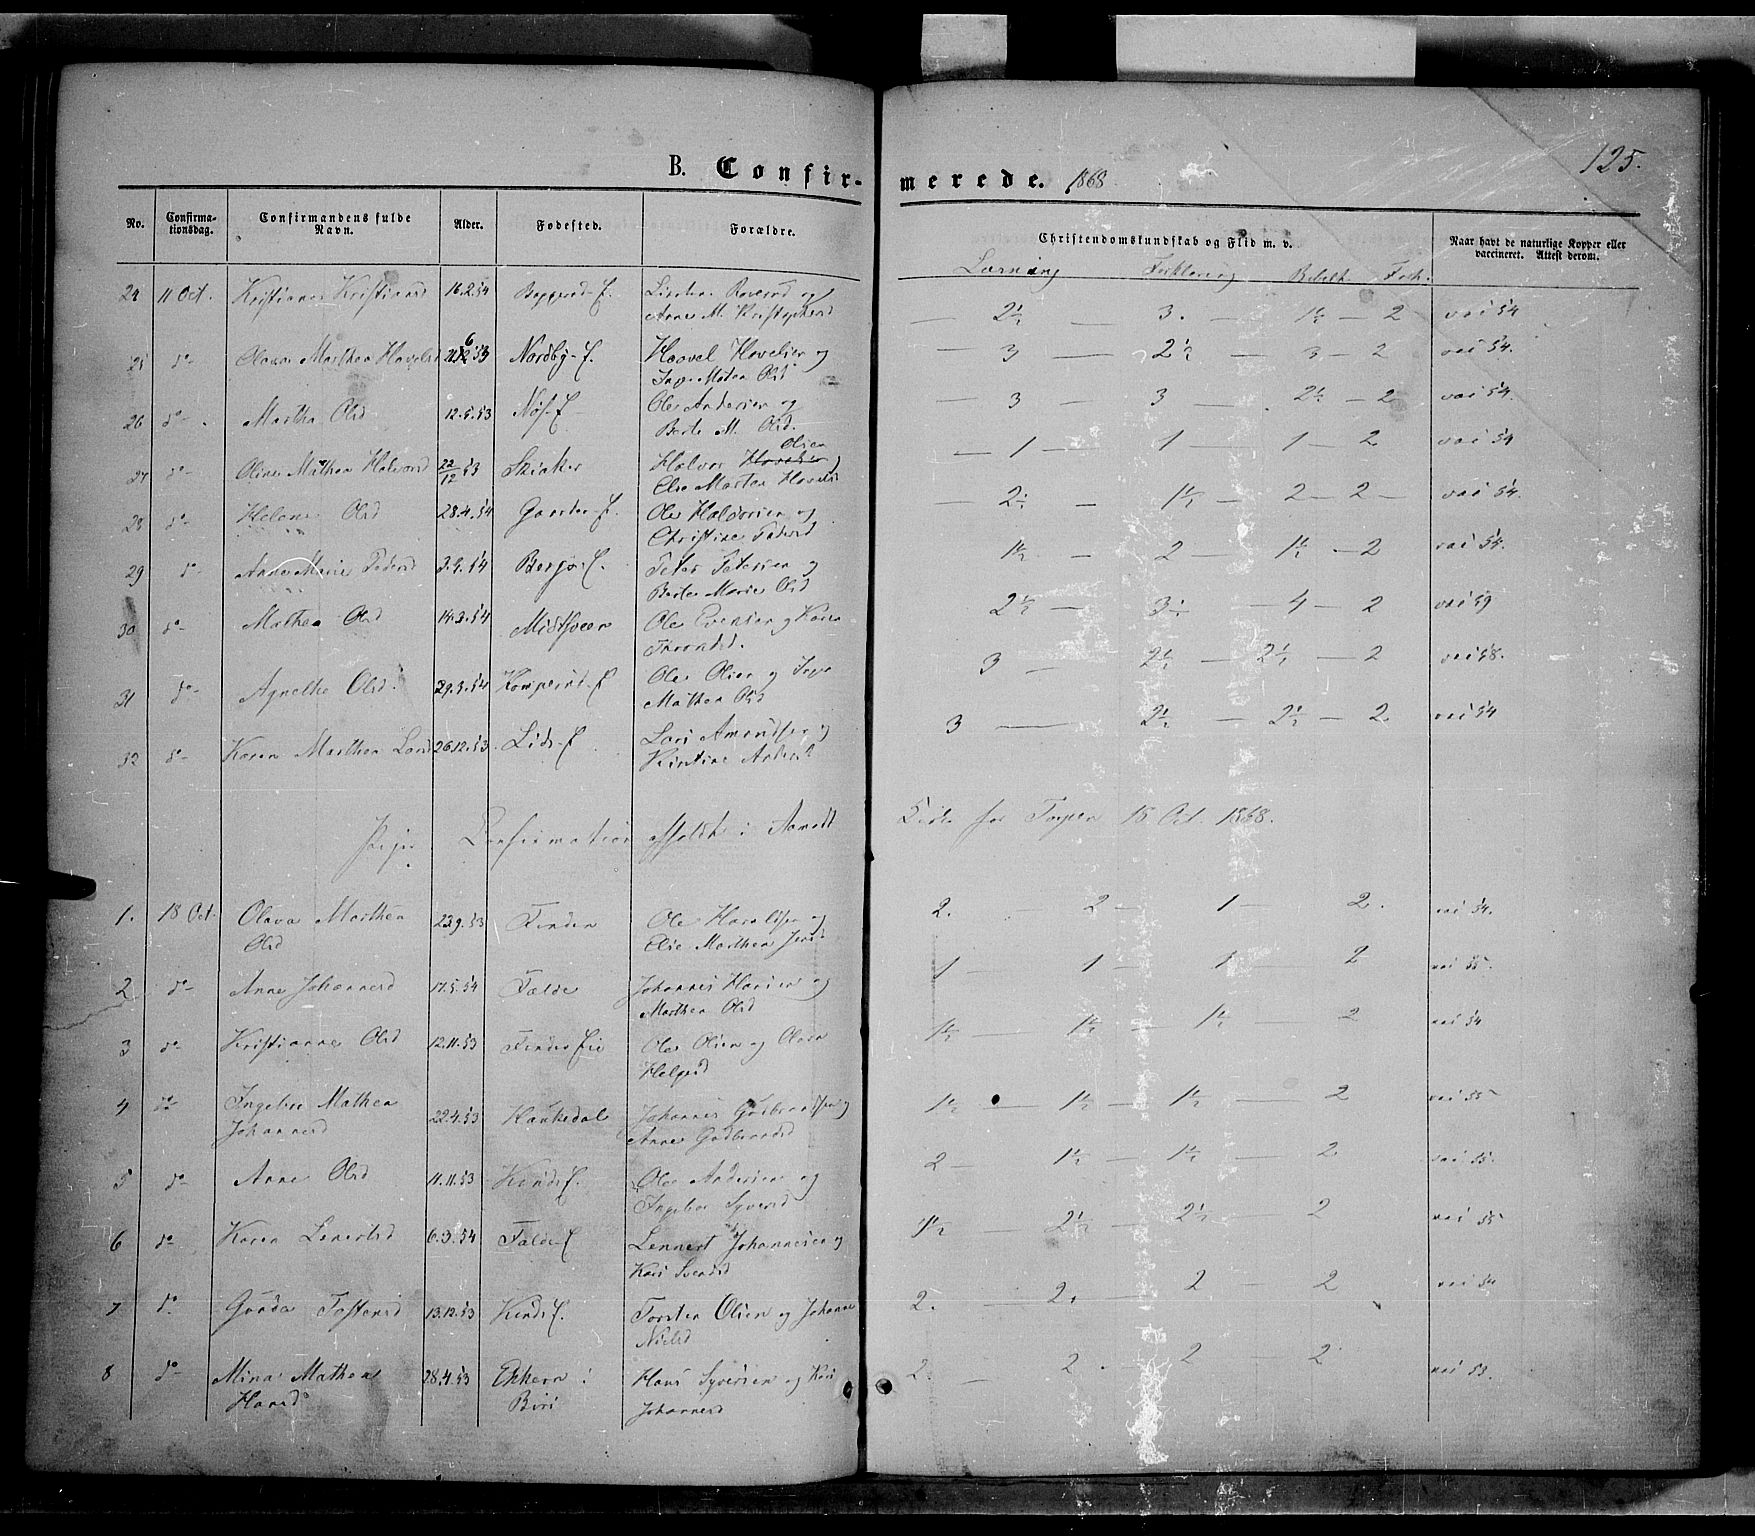 125.
B. Confirmerede. 1868
No. Confirmationsdag. Confirmandens fulde Navn. Alder. Fødested. Forældre. Christendomskundskab og Flid m. v. Naar havt de naturlige Kopper eller vaccineret. Attest derom.
Læsning Forklaring Bibelh. Forh.
24 11 Oct. Kristiane Kristiansd 16.2.54 og 2½ 3. 1½ 2 vac 54
Anne M. Kristophersd
25 do Olava Marthea Hovelsd 53 Nordby-E. Hovel Hovelsen og 3 2½ 3 2 vac 54.
Inge Matea Olsd
26 do Martha Olsd 12.5.53 Ole Andersen og 3 3 2½ 2 vac 54.
Berte M. Olsd.
27 do Oline Mathea Halvorsd 22/12 53 Skiaker Halvor Hovelsen Olsen og 1 1 1 2 vac 54
Elie Marten Hovelsd
28 do Helene Olsd 28.4.54 Ole Halvorsen og 2 1½ 2 2 vac 54.
Christine Pedersd
29 do Anne Marie Pedersd 3.9.54 Peter Petersen og 1½ 2 1½ 2 vac 54.
Berte Marie Olsd
30 do Mathea Olsd 14.3.54 Ole Evensen og Kari 2½ 3½ 4 2 vac 59
Throndsd.
31 do Agnethe Olsd. 29.3.54 Ole Olsen og Inge 3 2½ 2½ 2 vac 58.
Mathea Olsd
32 do Karen Marthea Larsd 26.12.53 Lids-E Lars Amundsen og 3 2½ 2½ 2 vac 54
Kirstine Andersd
Piger Confirmation afholdt i Aamodt Kirke for Torpen 18 Oct. 1868.
1. 18 Oct. Olava Marthea 23.9.53 Finden Ole Haraldsen og 2. 2 1 2. vac 54.
Olsd Elie Marthea Jensd
2 do Anne Johannesd 17.5.54 Falde Johannes Hansen og 1 1 1 2 vac 55.
Marthea Olsd
3 do Kristianne Olsd 12.11.53 Ole Olsen og Olava 1½ 1½ 1½ 2 vac 54
Helgesd
4 do Ingebor Mathea 22.4.53 Haukedal Johannes Gudbrandsen og 1½ 1½ 1½ 2 vac 55
Johannesd Anne Gudbrandsd
5 do Anne Olsd 11.11.53 Kinds E. Ole Andersen og 2 1½ 1½ 2 vac 55.
Ingebor Syversd
6 do Karen Lenertsd 6.3.54 Falde-E Lennert Johannesen og 1½ 2½ 2½ 2 vac 55
Kari Svendsd
7 do Tostensd 13.12.53 Kinds E. Torsten Olsen og Johanne 2. 2. 2 2 vac 54
Nielsd
8 do Mina Mathea 28.4.53 Ekkern i Hans Syversen og Kari 2. 2. 2 2 vac 53.
Hansd Biri Johannesd